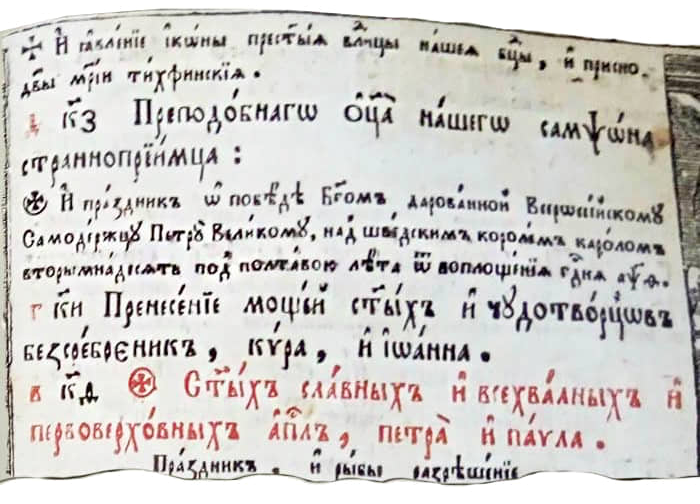 И҆ ꙗ҆вле́нїе і҆кѡ́ны прест҃ы́ѧ влⷣчцы на́шеѧ бцⷣы, и҆ присно-
дв҃ы мр҃і́и ти́хфинскїѧ.
к҃з Преподо́бнагѡ ѻ҆ц҃а̀ на́шегѡ самѱѡ́на
страннопрїи́мца :
И҆ пра́здникъ ѡ҆ побѣ́дѣ Бг҃омъ дарова́нной Всерѡссі́йскомꙋ
Самоде́ржцꙋ Петрꙋ̀ Вели́комꙋ, над̾ шве́дскимъ королѐмъ ка́роломъ
вторы́мна́десѧть под̾ полта́вою лѣ́та ѿ воплоще́нїѧ гдⷭ҇нѧ а҂ѱ҃ѳ.
г к҃и Пренесе́нїе моще́й ст҃ы́хъ и҆ чꙋдотво́рцѡвъ
безсре́брєникъ, кѵ́ра, и҆ і҆ѡа́нна.
в к҃ѳ Ст҃ы́хъ сла́вныхъ и҆ всехва́лныхъ и҆
первоверхо́вныхъ а҆пⷭ҇лъ, петра̀ и҆ па́ѵла.
Пра́здникъ. и҆ ры́бы разрѣше́нїе